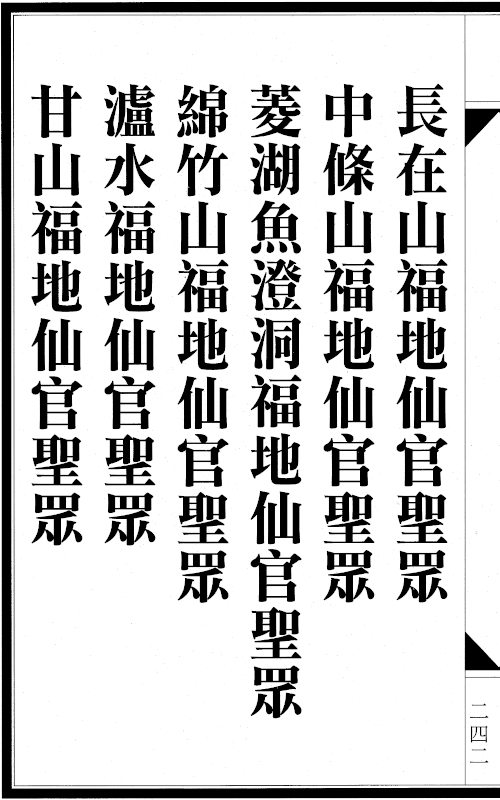 長在山福地仙官聖眾
中條山福地仙官聖眾
菱湖魚澄洞福地仙官聖眾
綿竹山福地仙官聖眾
瀘水福地仙官聖眾
甘山福地仙官聖眾
二四二